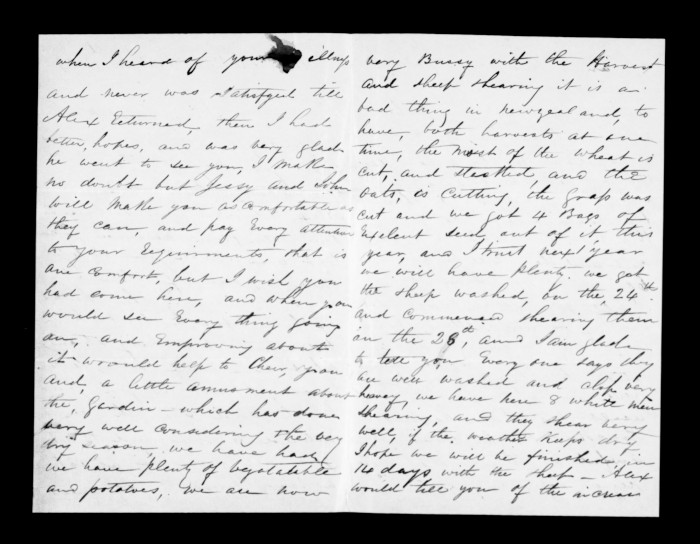 when I heard of your illness
and never was Satisfyed till
Alex Returned, then I had
better, hopes, and was very glad
he went to see you, I make
no doubt but Jessy and John
will make you as comfortable as
they can, and pay Every attention
to your Requirments, that is
one comfort, but I wish you
had come here, and when you
would see Every thing going
on, and Emproving about
it would help to Chear you
and, a little amusment about
the, Gardin - which has done
very well considering the very
dry season, we have had
we have plenty of vegatabble
and potatoes, we are now
very Bussy with the Harvest
and sheep shearing it is a
bad thing in newzealand, to
have, both harvests at one
time, the most of the wheat is
cut, and stacked, and the
oats, is cutting, the grass was
cut and we got 4 Bags of
Exelent seed out of it this
year, and I trust next year
we will have plenty. we got
the sheep washed, on the, 24th.
and commenced shearing them
on the 26th, and I am glad
to tell you Every one says they
are well washed and also very
heavey, we have here 8 white men
shearing, and they shear very
well, if the weather keeps dry
I hope we will be finished, in
14 days with the sheep - Alex
would tell you of the increase